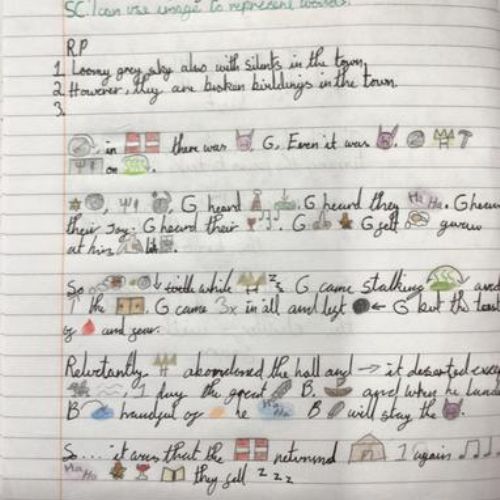 SC: I can use image to represent words.
R.P
1. Loomy grey sky also with silents in the town
2. However, they are broken buildings in the town
3.
in there was G. Even it was
or
G heard G heard they Ha Ha. G heard
their joy. G heard their G G felt
at him
So while z z G came stalking and
the G came 3x in all and left ← G but the
of and
Reluctantly abandoned the hall and → it deserted
, 1 day the great B. and when he
B handful of he Ha Ha B will stay the
S... it was that the returned 1 again
Ha Ha they fell z z z